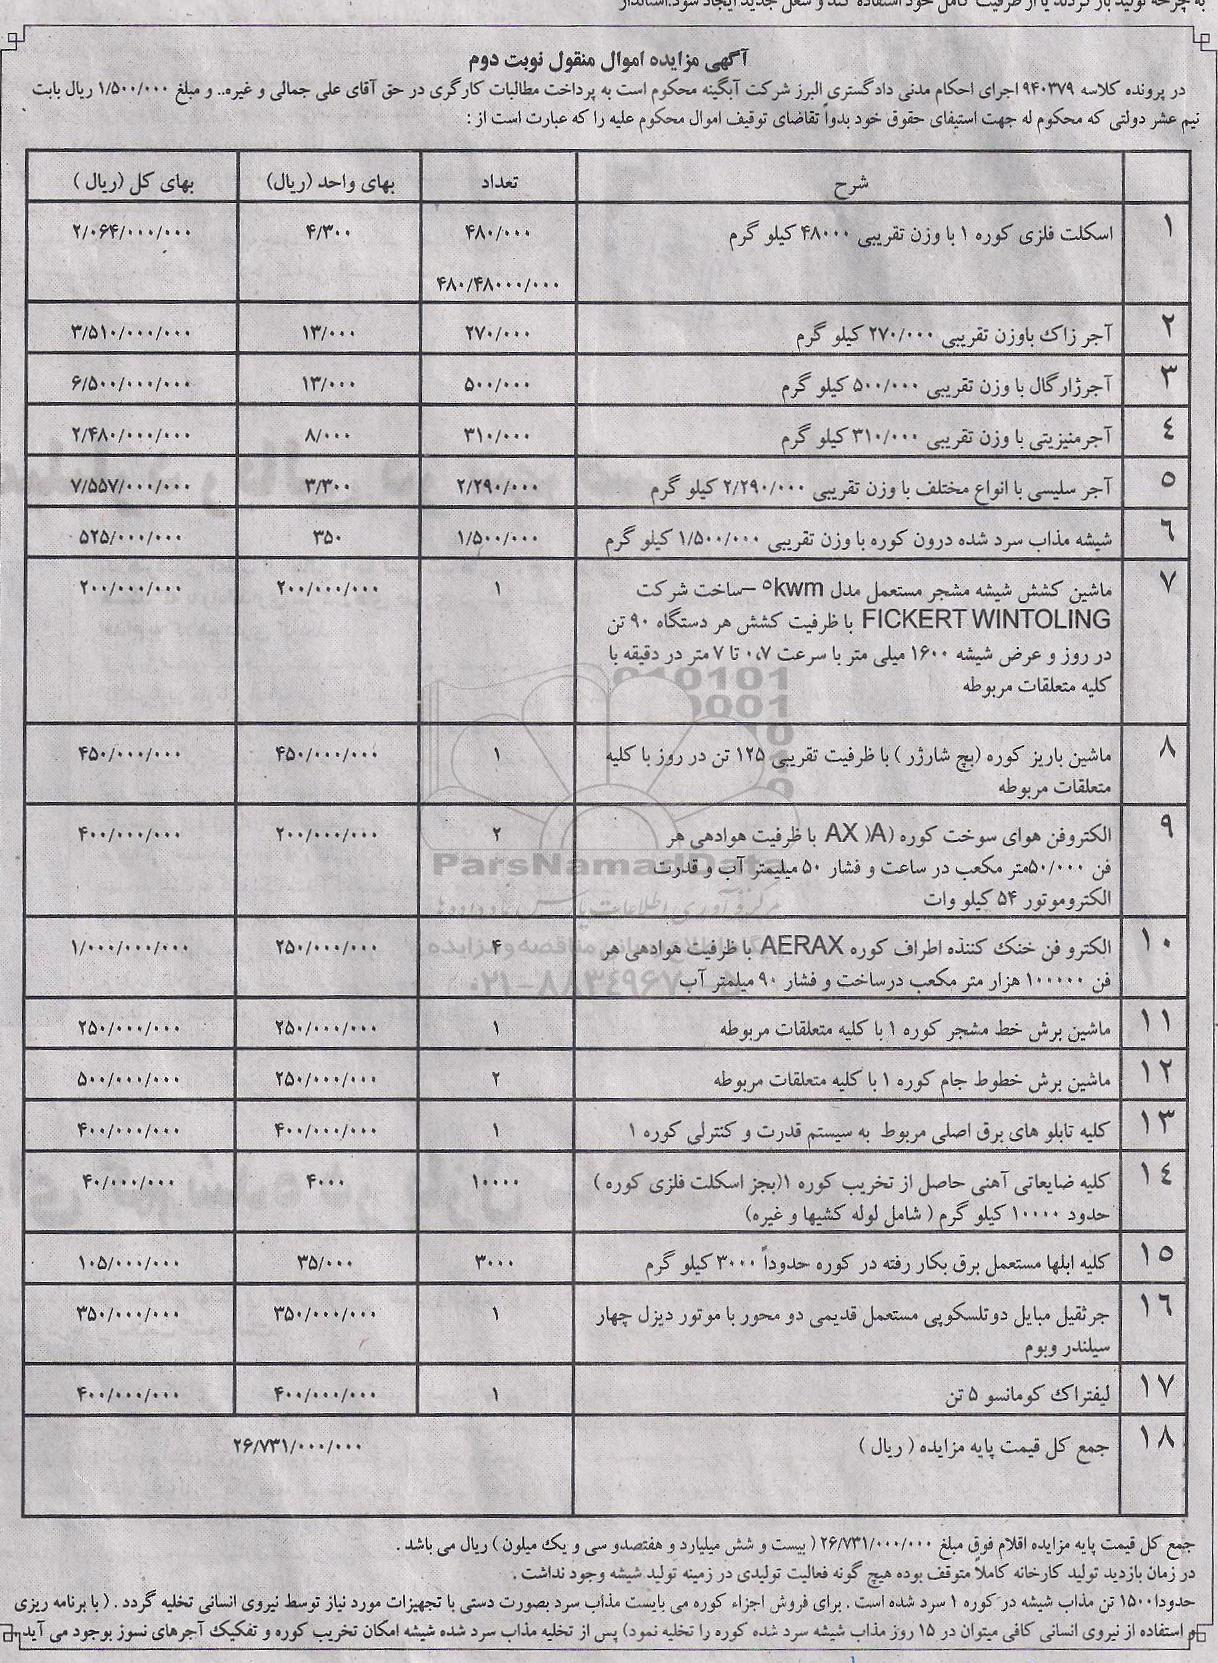 به چرخه تولید باز گردند یا از ظرفیت کامل خود استفاده کند و شغل جدید ایجاد شود.استاندار
آگهی مزایده اموال منقول نوبت دوم
در پرونده کلاسه ۹۴۰۳۷۹ اجرای احکام مدنی دادگستری البرز شرکت آبگینه محکوم است به پرداخت مطالبات کارگری در حق آقای علی جمالی و غیره.. و مبلغ ۱/۵۰۰/۰۰۰ ریال بابت
نیم عشر دولتی که محکوم له جهت استیفای حقوق خود بدواً تقاضای توقیف اموال محکوم علیه را که عبارت است از :
شرح تعداد بهای واحد (ریال) بهای کل (ریال )
۱ اسکلت فلزی کوره ۱ با وزن تقریبی ۴۸۰۰۰ کیلو گرم ۴۸۰/۰۰۰ ۴/۳۰۰ ۲/۰۶۴/۰۰۰/۰۰۰
۴۸۰/۴۸۰۰۰/۰۰۰
۲ آجر زاک باوزن تقریبی ۲۷۰/۰۰۰ کیلو گرم ۲۷۰/۰۰۰ ۱۳/۰۰۰ ۳/۵۱۰/۰۰۰/۰۰۰
۳ آجرژارگال با وزن تقریبی ۵۰۰/۰۰۰ کیلو گرم ۵۰۰/۰۰۰ ۱۳/۰۰۰ ۶/۵۰۰/۰۰۰/۰۰۰
۴ آجرمنیزیتی با وزن تقریبی ۳۱۰/۰۰۰ کیلو گرم ۳۱۰/۰۰۰ ۸/۰۰۰ ۲/۴۸۰/۰۰۰/۰۰۰
۵ آجر سلیسی با انواع مختلف با وزن تقریبی ۲/۲۹۰/۰۰۰ کیلو گرم ۲/۲۹۰/۰۰۰ ۳/۳۰۰ ۷/۵۵۷/۰۰۰/۰۰۰
۶ شیشه مذاب سرد شده درون کوره با وزن تقریبی ۱/۵۰۰/۰۰۰ کیلو گرم ۱/۵۰۰/۰۰۰ ۳۵۰ ۵۲۵/۰۰۰/۰۰۰
۷ ماشین کشش شیشه مشجر مستعمل مدل ۵kwm –ساخت شرکت ۱ ۲۰۰/۰۰۰/۰۰۰ ۲۰۰/۰۰۰/۰۰۰
FICKERT WINTOLING با ظرفیت کشش هر دستگاه ۹۰ تن
در روز و عرض شیشه ۱۶۰۰ میلی متر با سرعت ۰،۷ تا ۷ متر در دقیقه با
کلیه متعلقات مربوطه
۸ ماشین باریز کوره (بچ شارژر ) با ظرفیت تقریبی ۱۲۵ تن در روز با کلیه ۱ ۴۵۰/۰۰۰/۰۰۰ ۴۵۰/۰۰۰/۰۰۰
متعلقات مربوطه
۹ الکتروفن هوای سوخت کوره (AX )A با ظرفیت هوادهی هر ۲ ۲۰۰/۰۰۰/۰۰۰ ۴۰۰/۰۰۰/۰۰۰
فن ۵۰/۰۰۰متر مکعب در ساعت و فشار ۵۰ میلیمتر آب و قدرت
الکتروموتور ۵۴ کیلو وات
۱۰ الکترو فن خنک کننده اطراف کوره AERAX با ظرفیت هوادهی هر ۴ ۲۵۰/۰۰۰/۰۰۰ ۱/۰۰۰/۰۰۰/۰۰۰
فن ۱۰۰۰۰۰ هزار متر مکعب درساخت و فشار ۹۰ میلمتر آب
۱۱ ماشین برش خط مشجر کوره ۱ با کلیه متعلقات مربوطه ۱ ۲۵۰/۰۰۰/۰۰۰ ۲۵۰/۰۰۰/۰۰۰
۱۲ ماشین برش خطوط جام کوره ۱ با کلیه متعلقات مربوطه ۲ ۲۵۰/۰۰۰/۰۰۰ ۵۰۰/۰۰۰/۰۰۰
۱۳ کلیه تابلو های برق اصلی مربوط به سیستم قدرت و کنترلی کوره ۱ ۱ ۴۰۰/۰۰۰/۰۰۰ ۴۰۰/۰۰۰/۰۰۰
۱۴ کلیه ضایعاتی آهنی حاصل از تخریب کوره ۱(بجز اسکلت فلزی کوره ) ۱۰۰۰۰ ۴۰۰۰ ۴۰/۰۰۰/۰۰۰
حدود ۱۰۰۰۰ کیلو گرم ( شامل لوله کشیها و غیره)
۱۵ کلیه ابلها مستعمل برق بکار رفته در کوره حدوداً ۳۰۰۰ کیلو گرم ۳۰۰۰ ۳۵/۰۰۰ ۱۰۵/۰۰۰/۰۰۰
۱۶ جرثقیل مبایل دوتلسکوپی مستعمل قدیمی دو محور با موتور دیزل چهار ۱ ۳۵۰/۰۰۰/۰۰۰ ۳۵۰/۰۰۰/۰۰۰
سیلندر وبوم
۱۷ لیفتراک کومانسو ۵ تن ۱ ۴۰۰/۰۰۰/۰۰۰ ۴۰۰/۰۰۰/۰۰۰
۱۸ جمع کل قیمت پایه مزایده ( ریال ) ۲۶/۷۳۱/۰۰۰/۰۰۰
جمع کل قیمت پایه مزایده اقلام فوق مبلغ ۲۶/۷۳۱/۰۰۰/۰۰۰ ( بیست و شش میلیارد و هفتصدو سی و یک میلون ) ریال می باشد .
در زمان بازدید تولید کارخانه کاملاً متوقف بوده هیچ گونه فعالیت تولیدی در زمینه تولید شیشه وجود نداشت .
حدودا۱۵۰۰ تن مذاب شیشه در کوره ۱ سرد شده است . برای فروش اجزاء کوره می بایست مذاب سرد بصورت دستی با تجهیزات مورد نیاز توسط نیروی انسانی تخلیه گردد . ( با برنامه ریزی
و استفاده از نیروی انسانی کافی میتوان در ۱۵ روز مذاب شیشه سرد شده کوره را تخلیه نمود) پس از تخلیه مذاب سرد شده شیشه امکان تخریب کوره و تفکیک آجرهای نسوز بوجود می آید .
ParsNamadData
مرکز فرآوری اطلاعات پارس نماد داده ها